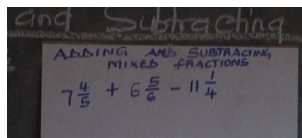 and Subtracting
ADDING AND SUBTRACTING
MIXED FRACTIONS
7 4/5 + 6 5/6 - 11 1/4